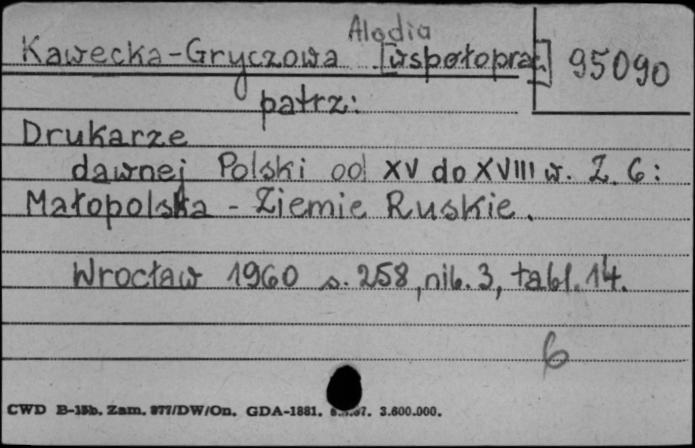 Alodia
Kawecka-Gryczowa [współoprac.] 95090
patrz:
Drukarze
dawnej Polski od XV do XVIII w. Z. 6:
Małopolska - Ziemie Ruskie.
Wrocław 1960 s. 258, nlb. 3, tabl. 14.
6
CWD B-15b. Zam. 877/DW/On. GDA-1881. 3.600.000.